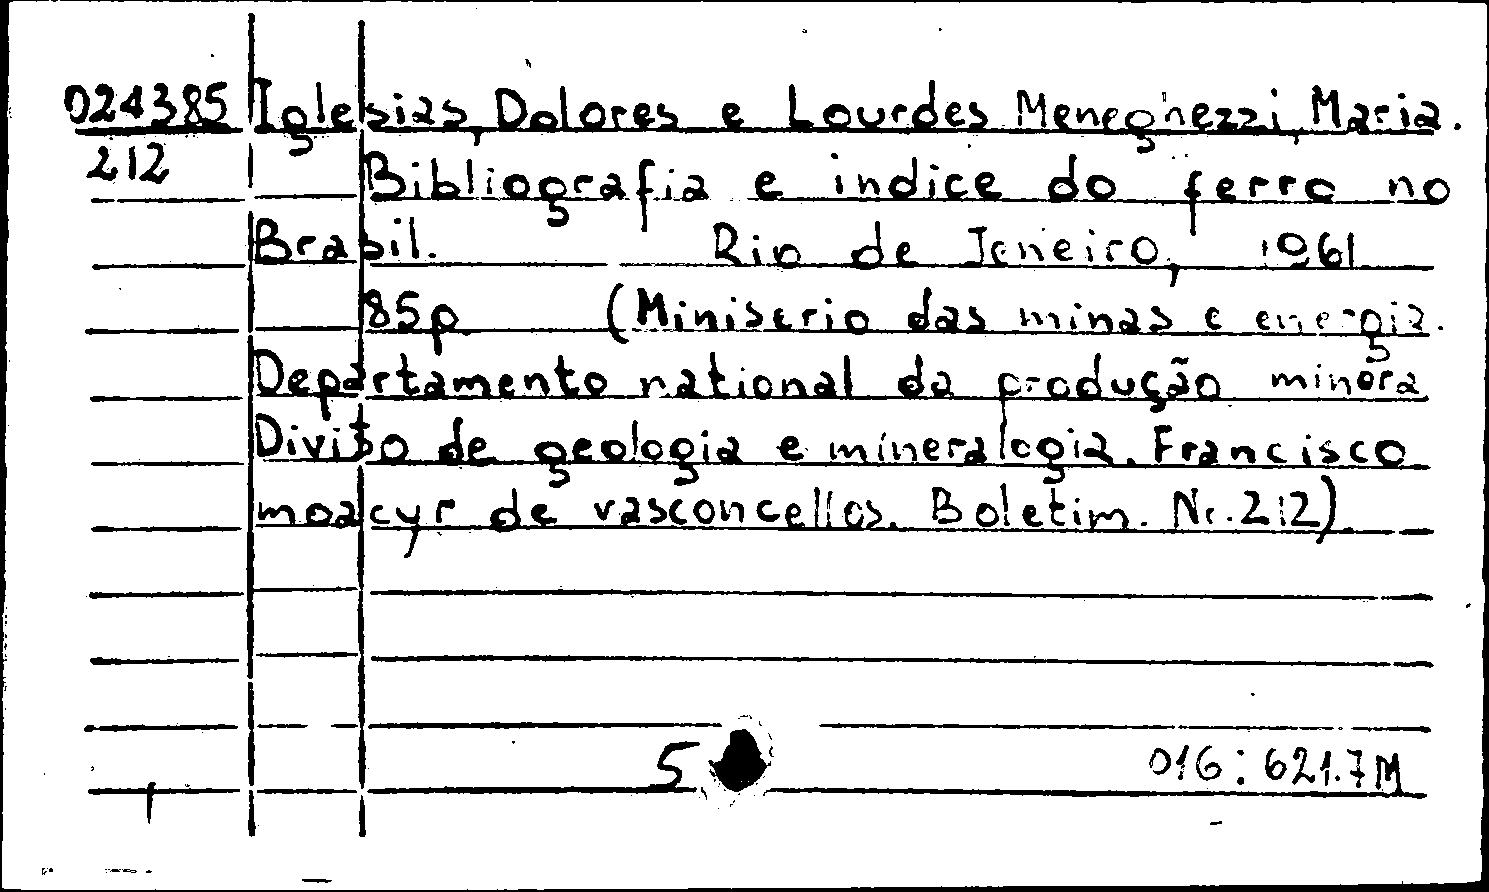 024385 Iglesias, Dolores e Lourdes Meneghezzi, Maria.
212 Bibliografia e indice do ferro no
Brasil. Rio de Janeiro, 1961
85p (Miniserio das minas e energia.
Departamento national da produção minera
Divito de geologia e mineralogia. Francisco
moacyr de vasconcellos. Boletim. Nr. 212)
5 016:621.7M